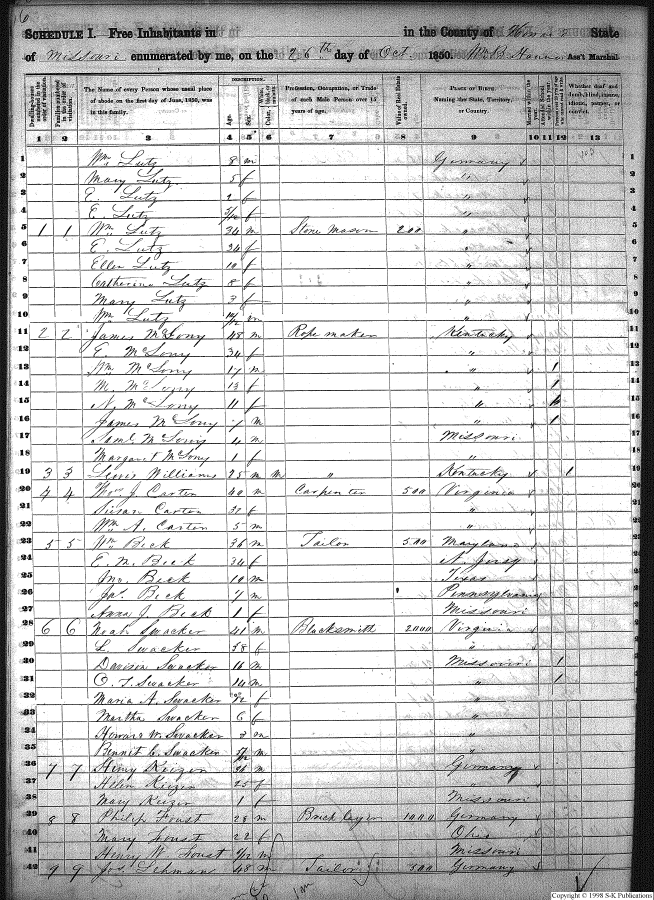 6
SCHEDULE I. Free Inhabitants in in the County of State
of Missouri enumerated by me, on the 26th day of Oct. 1850. Wm B Ass't Marshal
Dwelling-houses numbered in the order of visitation. Families numbered in the order of visitation. The Name of every Person whose usual place of abode on the first day of June, 1850, was in this family. DESCRIPTION. Age. Sex. White, Color, black or mulatto. Profession, Occupation, or Trade of each Male Person over 15 years of age. Value of Real Estate owned. PLACE OF BIRTH. Naming the State, Territory, or Country. Married within the year. Attended School within the year. Whether deaf and dumb, blind, insane, idiotic, pauper, or convict.
1 2 3 4 5 6 7 8 9 10 11 12 13
1 Wm Lutz 8 m Germany 1
2 Mary Lutz 5 f " 2
3 E. Lutz 2 f " 3
4 E. Lutz f " 4
5 1 1 Wm Lutz 34 m Stone Mason 200 " 5
6 E. Lutz 34 f " 6
7 Ellen Lutz 10 f " 7
8 Catherine Lutz 8 f " 8
9 Mary Lutz 3 f " 9
10 Wm Lutz m " 10
11 2 2 James McSony 48 m Rope maker Kentucky 11
12 E. McSony 34 f " 12
13 Wm McSony 17 m " 1 13
14 M. McSony 13 f " 1 14
15 N. McSony 11 f " 15
16 James McSony 7 m " 1 16
17 Saml McSony 4 m Missouri 17
18 Margaret McSony 1 f " 18
19 3 3 Lewis Williams 25 m m " Kentucky 1 19
20 4 4 Wm J. Carton 40 m Carpenter 500 Virginia 20
21 Susan Carton f " 21
22 Wm A. Carton 5 m " 22
23 5 5 Wm Beck 36 m Tailor 500 Maryland 23
24 E. M. Beck 34 f N. Jersy 24
25 Jno. Beck 10 m Texas 25
26 Jas. Beck 7 m Pennsylvania 26
27 Anna J. Beck 1 f Missouri 27
28 6 6 Noah Swacker 41 m Blacksmith 2000 Virginia 28
29 L. Swacker 38 f " 29
30 Davison Swacker 16 m Missouri 1 30
31 O. T. Swacker 14 m " 1 31
32 Maria A. Swacker 12 f " 32
33 Martha Swacker 6 f " 33
34 Howard W. Swacker 3 m " 34
35 Bennit C. Swacker m " 35
36 7 7 Henry Keizer 26 m Germany 36
37 Helen Keizer 25 f " 37
38 Mary Keizer 1 f Missouri 38
39 8 8 Philip Foust 28 m Brick layer 1000 Germany 39
40 Mary Foust 22 f Ohio 40
41 Henry W. Foust m Missouri 41
42 9 9 Jos. Lehman 48 m Tailor 500 Germany 42
Copyright © 1998 S-K Publications